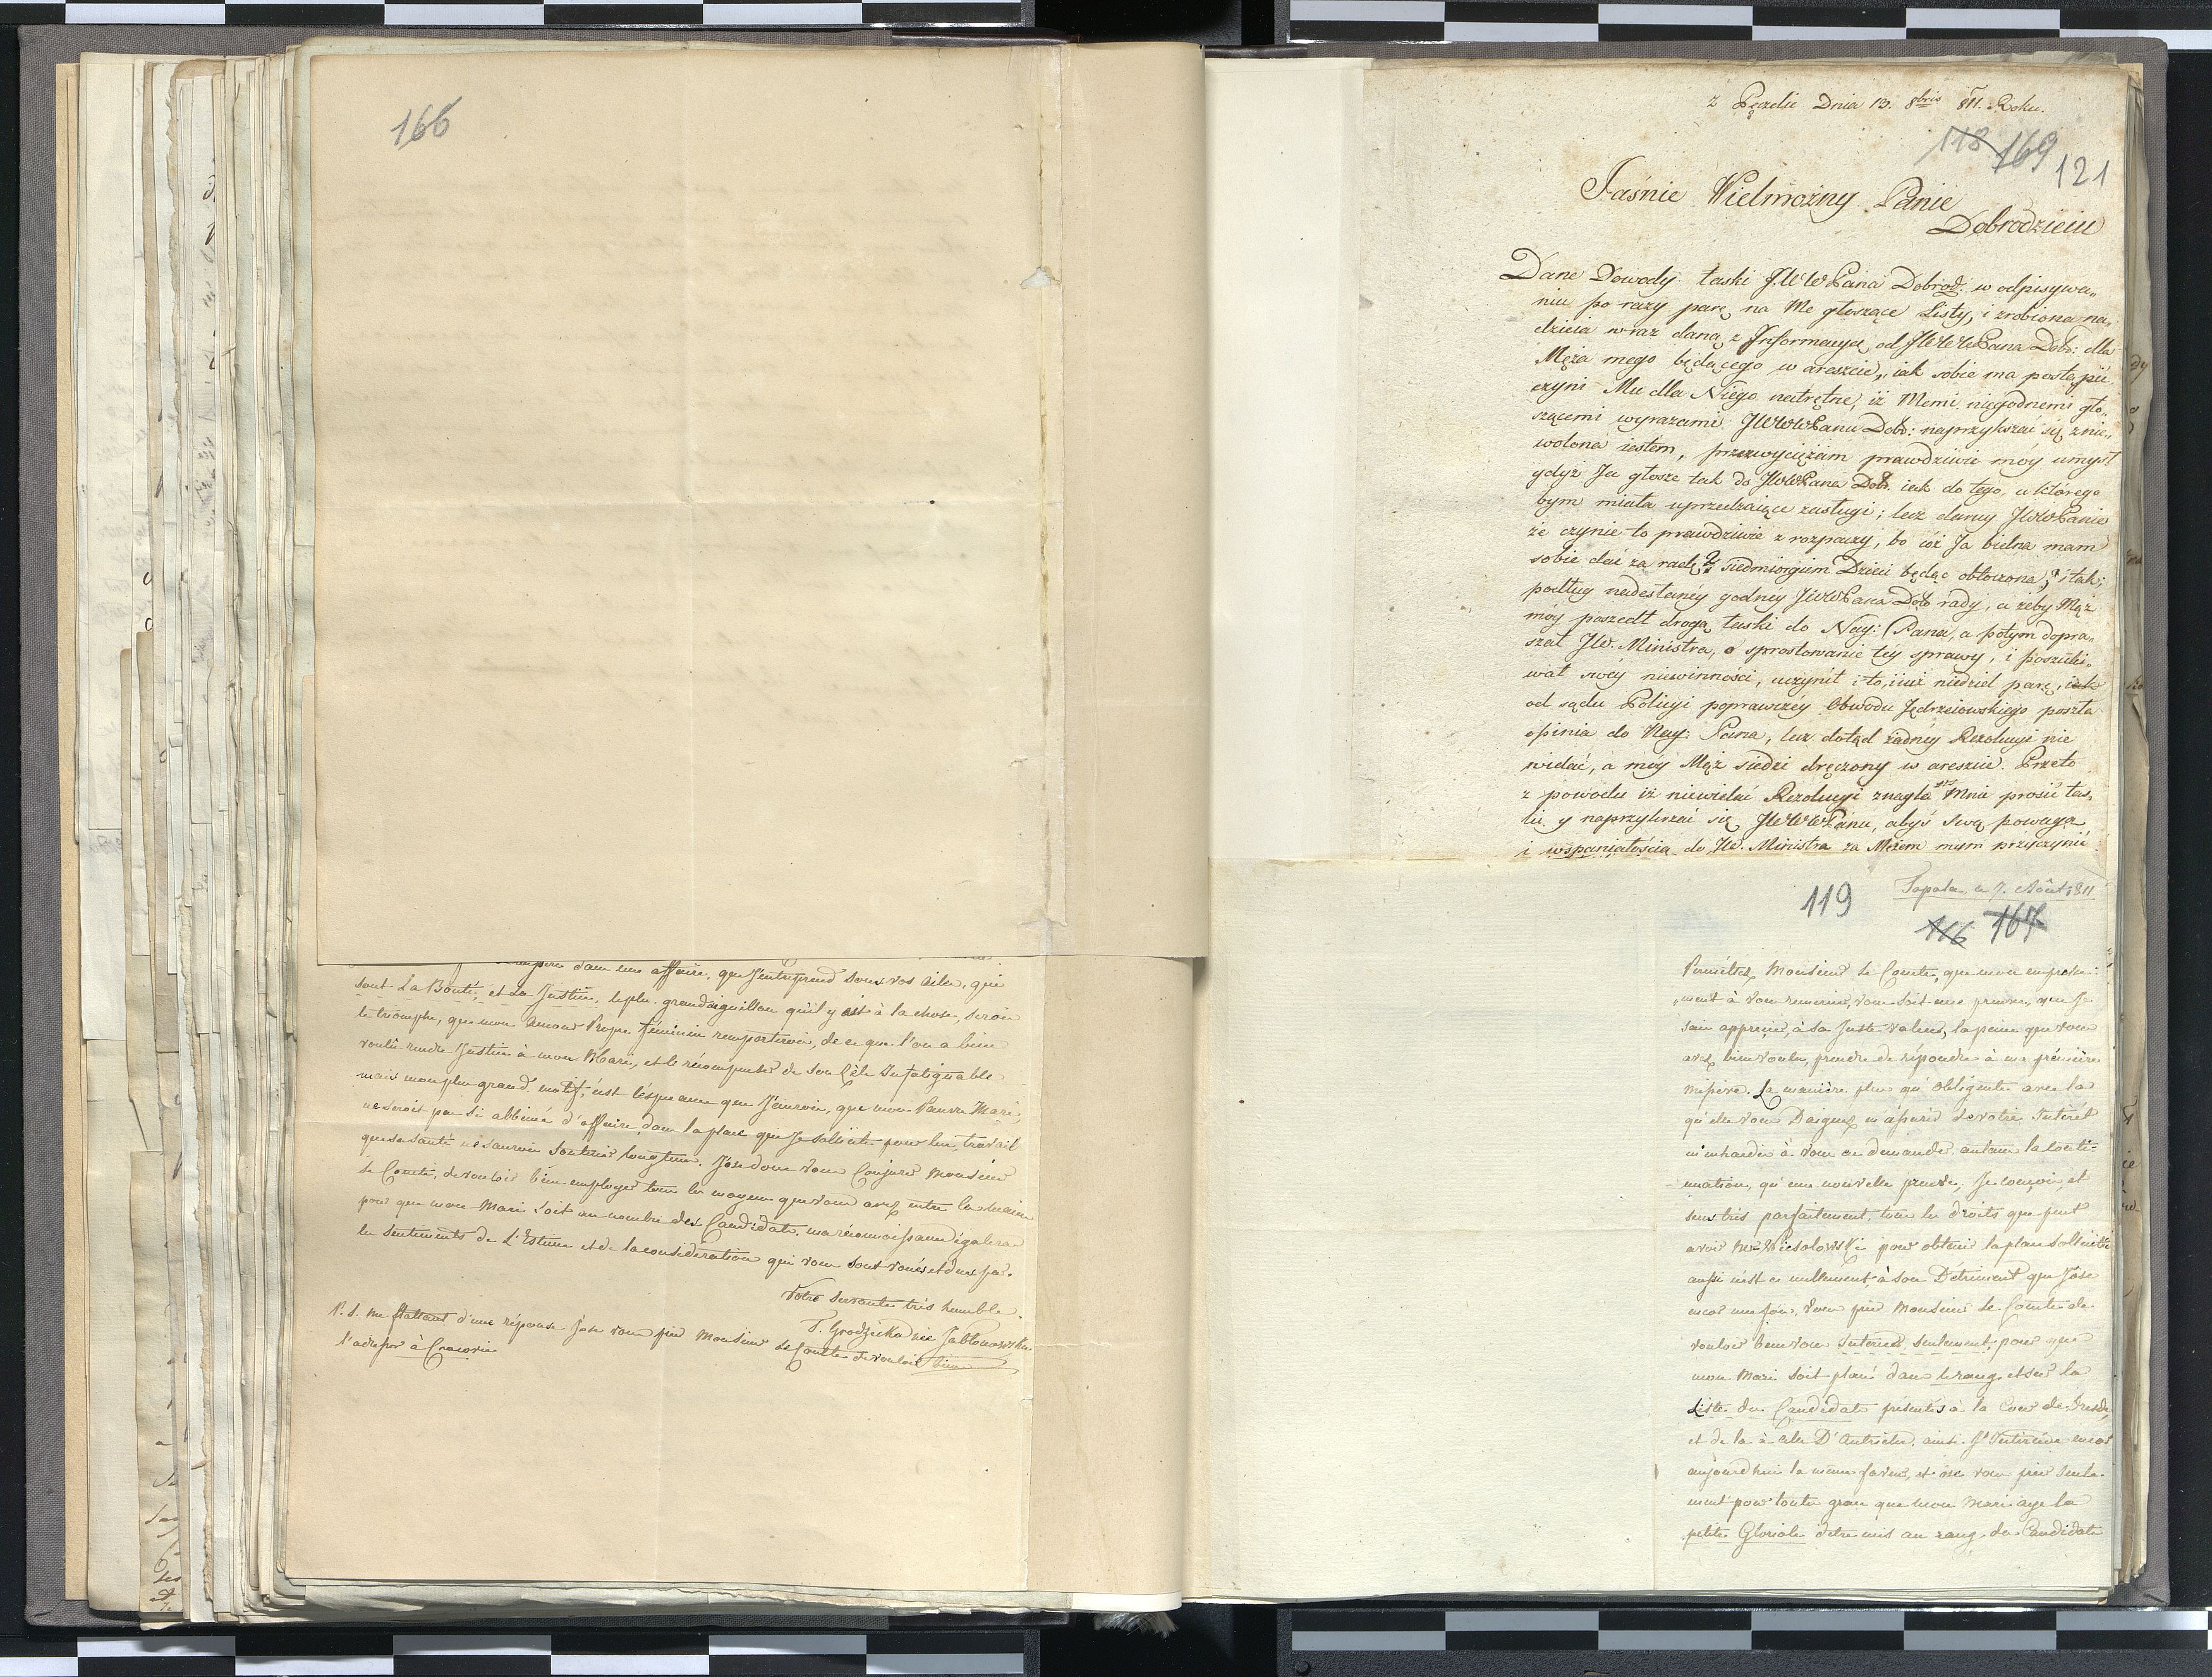 166
sont la Bonté, et la Justice, le plus grand aiguillon qu'il y ait à la chose, seroit
le triomphe, que mon Amour Propre féminin remporteroi, de ce que l'on a bien
voulû rendre Justice à mon Mari, et le récompenser de son Zèle Infatiguable
mais mon plus grand motif, c'est l'éspérance que J'aurois, que mon Pauvre Mari,
ne seroit pas si abbimé d'affaire, dans la place que Je sollicite pour lui, travail
que sa santé ne sauroit soutenir longtems. J'ose donc vous Conjurer Monsieur
le Comte, de vouloir bien employer tous les moyens que vous avez entre les mains
pour que mon Mari soit au nombre des Candidats, ma réconnoissance égalera
les sentiments de L'Estime et de la considération qui vous sont voués
Votre servante très humble
T. Grodzicka née Jabłonowska
P. S. me flattant d'une réponse J'ose vous prier Monsieur le Comte de vouloir bien
l'adresser à Cracovie
z Dnia 13. 8bris 811. Roku.
118 169 121
Jaśnie Wielmożny Panie
Dobrodzieiu
Dane Dowody łaski JWWPana Dobrod. w odpisywa„
niu po razy parę na Me głoszące Listy, i zrobiona na„
dzieia wraz daną z Informacyą od JWWWPana Dob: dla
Męża mego będącego w areszcie, iak sobie ma postąpić
czyni Mu dla Niego natrętne, iż Memi niegodnemi gło„
szącemi wyrazami JWWWPanu Dob: naprzykrzać się znie„
wolona iestem, przezwyciężam prawdziwie móy umysł
gdyż Ja głosze tak do JWWPana Dob. iak do tego, u którego
bym miała uprzedzaiące zasługi; lecz daruy JWWPanie
że czynie to prawdziwie z rozpaczy, bo cóż Ja biedna mam
sobie dać za radę z siedmiorgiem Dzieci będąc obłoczona, i tak;
podług nadesłanéy godnéy JWWPana Dob rady, a żeby Mąż
móy poszedł drogą łaski do Nay: Pana, a potym dopra„
szał JW. Ministra, o sprostowanie tey sprawy, i poszuki„
wał swéy niewinności, uczynił i to, iuż niedziel parę, iak
od sądu Policyi poprawczéy Obwodu Jędrzeiowskiego poszła
opinia do Nay: Pana, lecz dotąd żadnéy Rezolucyi nie
widać, a móy Mąż siedzi dręczony w areszcie. Przeto
z powodu iż niewidać Rezolucyi znagla Mnie prosić łas„
ki y naprzykrzać się JWWWPanu, abyś swą powagą
i wspaniałością do JW. Ministra za Mężem mym przyczynić
119 Août 1811
116 167
Permettez Monsieur le Comte, que mon empresse:
„ment à vous remercier, vous soit une preuve, que Je
sais apprecier, à sa Juste valeur, la peine que vous
avez bien voulu, prendre de répondre à ma première
missive. La manière plus qu'obligente avec la
qu'elle vous Daignez m'assurer de votre Intérêt
m'enhardie à vous en demander autant la conti=
nuation, qu'une nouvelle preuve, Je conçois, et
sens très parfaitement, tous les droits que peut
avoir Mr Wiesołowski pour obtenir la place sollicité
aussi n'est ce nullement à son Détriment que J'ose
encor une fois, vous prier Monsieur le Comte de
vouloir bien vous Interesser, seulement, pour que
mon Mari soit placé dans le rang, et sur la
Liste des Candidats présentés à la Cour de Dresde,
et de la à celle D'Autriche, ainsi encor
aujourd'hui la même faveur, et ose vous prier seule-
ment pour toute grace que mon Mari aye la
petite Gloriole d'etre mis au rang des Candidats